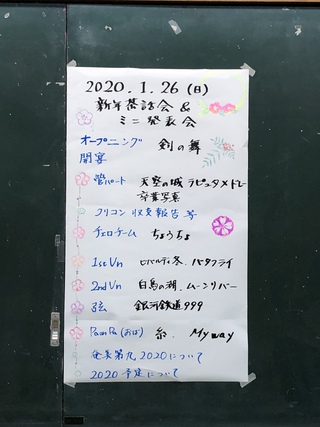 2020.1.26(日)
新年茶話会&
ミニ発表会
オープニング 剣の舞
開宴
管パート 天空の城ラピュタメドレー
卒業写真
クリコン 収支報告等
チェロチーム ちょうちょ
1st Vn ビバルディ冬、バタフライ
2nd Vn 白鳥の湖、ムーンリバー
弦 銀河鉄道999
PaonPa(おば) 糸、My way
第九2020について
2020予定について